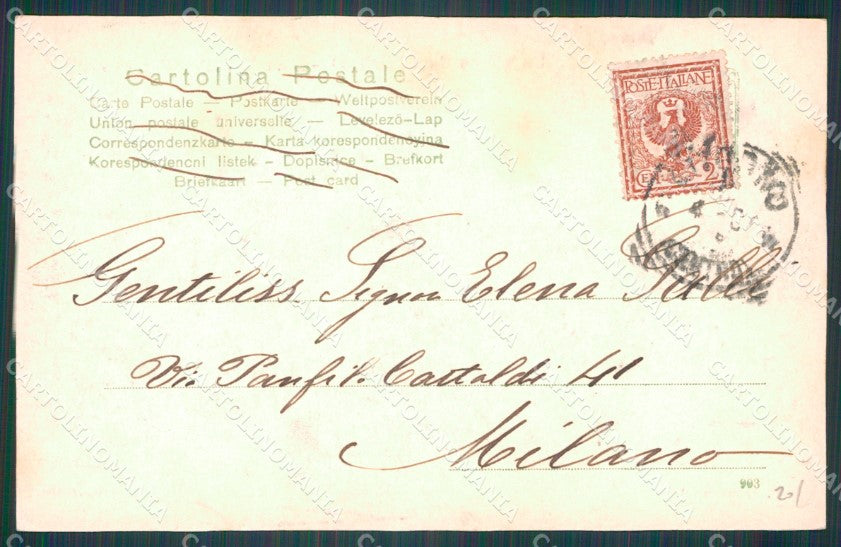 Cartolina Postale
Carte Postale — Postkarte — Weltpostverein
Union postale universelle — Levelező-Lap
Correspondenzkarte — Karta korespondencyjna
Korespondencni listek — Dopisnice — Brefkort
Briefkaart — Post card
POSTE·ITALIANE
2
Gentiliss. Signora Elena
Via Panfil. Castaldi 41
Milano
993
20/
CARTOLINOMANIA